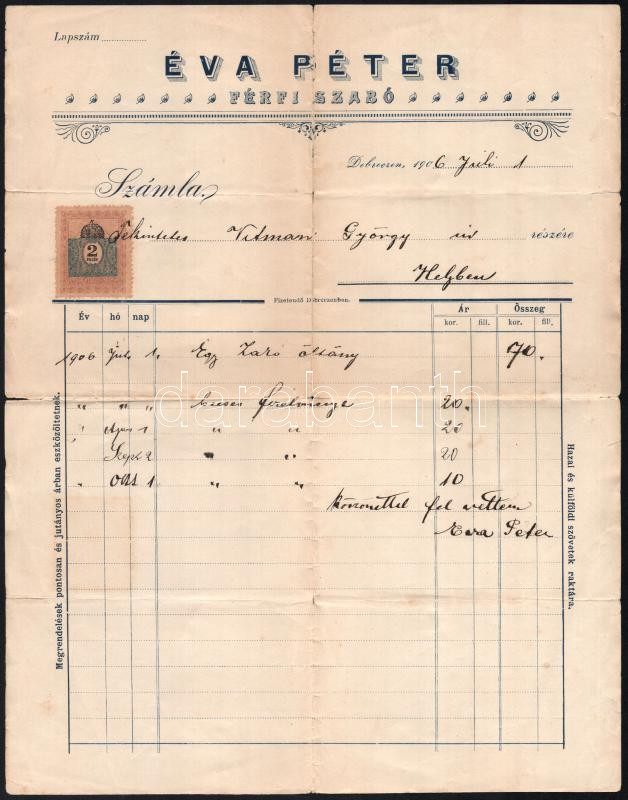 Lapszám
ÉVA PÉTER
FÉRFI SZABÓ
Debreczen, 1906 Juli 1
Számla
Tekintetes Vitman György úr részére
2
Helyben
Fizetendő Debreczenben.
Év hó nap Ár Összeg
kor. fill. kor. fill.
1906 Juli 1. Egy Zakó öltöny 70.
" " " 20.
" " " 20
Szept 2 " " 20
" Okt 1 " " 10
Köszönettel fel vettem
Eva Péter
Megrendelések pontosan és jutányos árban eszközöltetnek.
Hazai és külföldi szövetek raktára.
darabanth